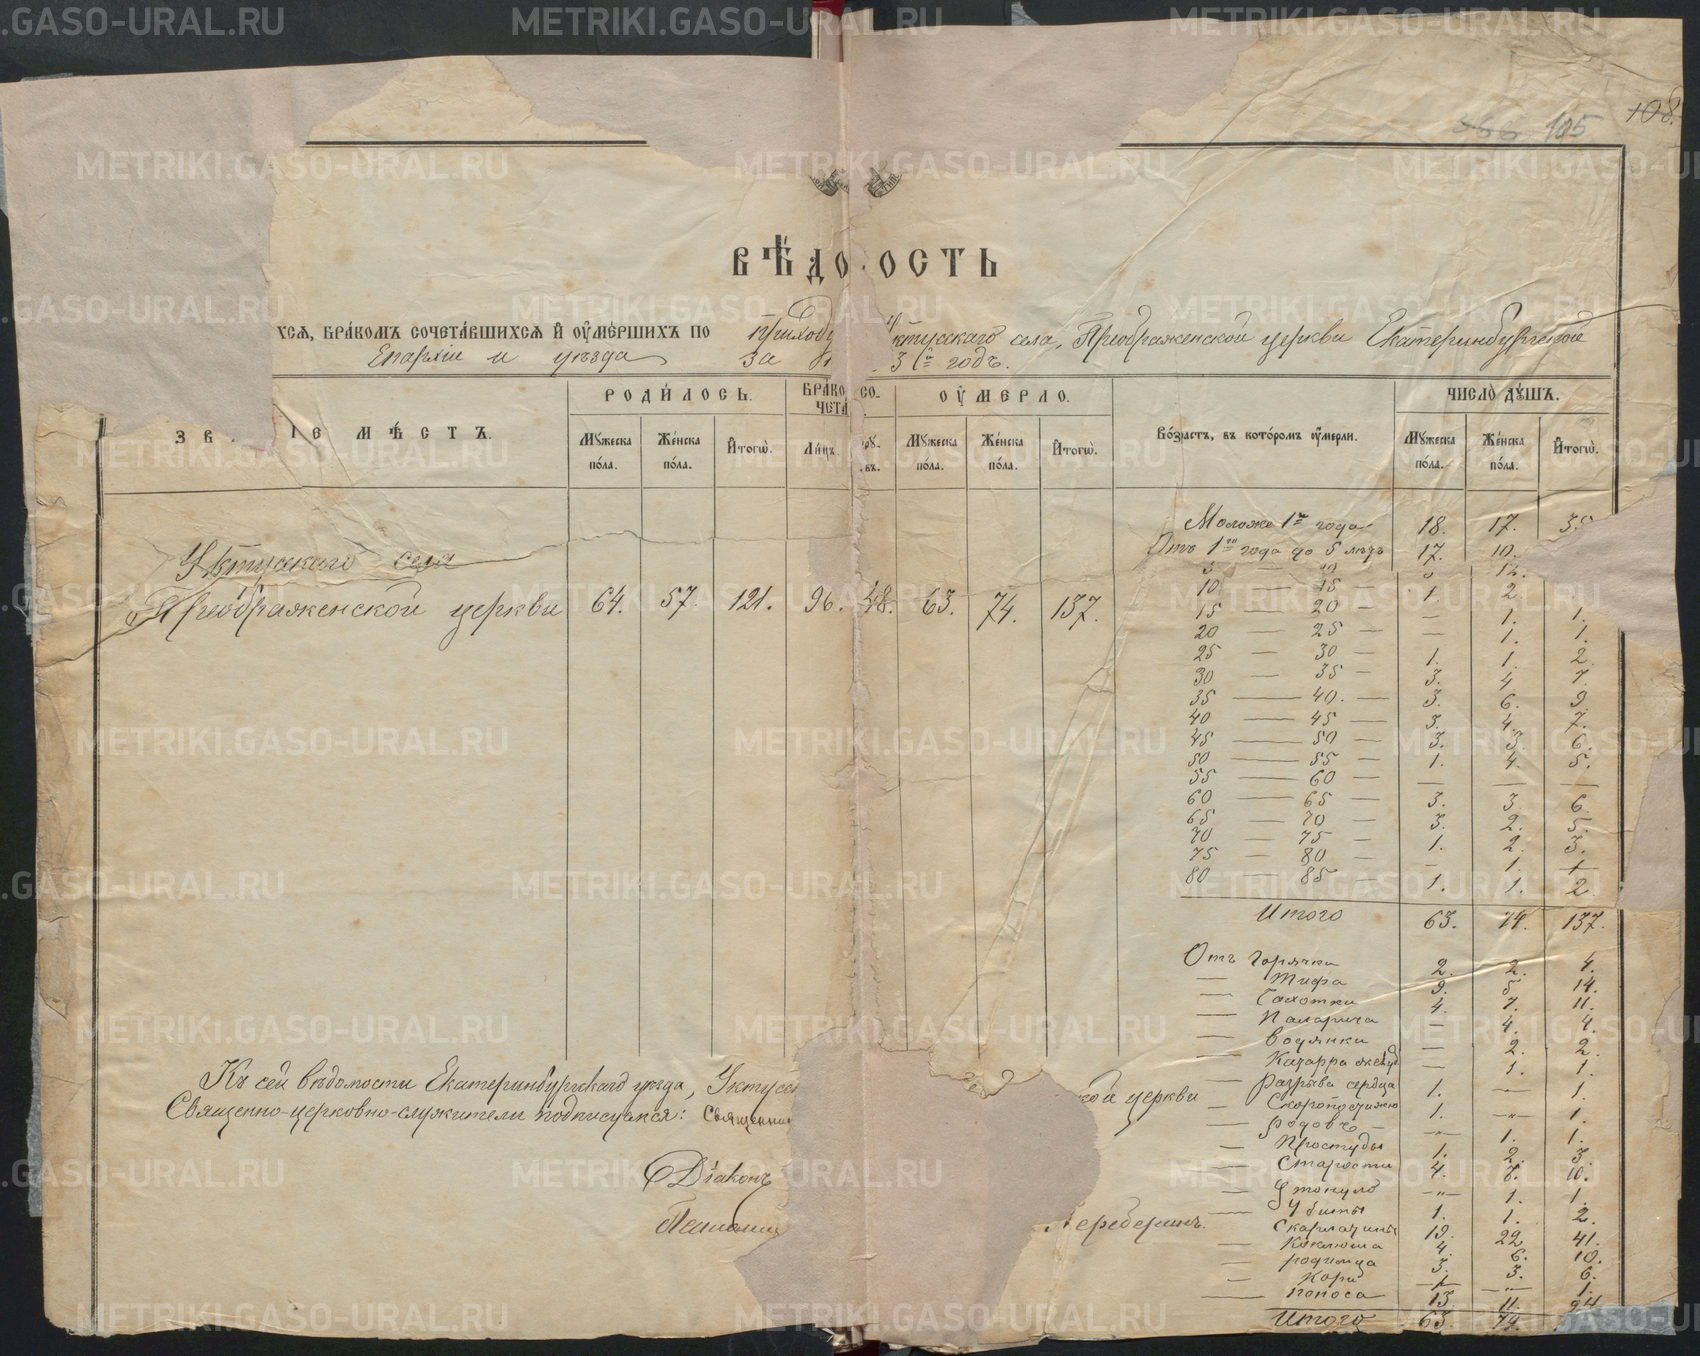 108.
105
ВѢДО ОСТЬ
ХСЯ, БРАКОМЪ СОЧЕТАВШИХСЯ И ОУМЕРШИХЪ ПО приходу ктусскаго села, Преображенской церкви Екатеринбургской
Епархіи и уѣзда за 3й годъ.
ЗВ ІЕ МѢСТЪ.
РОДИЛОСЬ.
БРАКО СО-
ЧЕТА
ОУМЕРЛО.
Возрастъ, въ которомъ оумерли.
ЧИСЛО ДУШЪ.
Мужеска пола. Женска пола. Итого. Лицъ. Мужеска пола. Женска пола. Итого. Мужеска пола. Женска пола. Итого.
Уктусскаго села
Преображенской церкви 64. 57. 121. 96. 48. 63. 74. 137.
Моложе 1го года 18. 17.
Отъ 1го года до 5 лѣтъ 17. 10.
12.
10 — 15 — 1. 2
15 — 20 — — 1. 1.
20 — 25 — — 1. 1.
25 — 30 — 1. 1. 2.
30 — 35 — 3. 4 7.
35 — 40. — 3. 6. 9.
40 — 45 — 3. 4. 7.
45 — 50 — 3. 3. 6.
50 — 55 — 1. 4. 5.
55 — 60 — — — —
60 — 65 — 3. 3. 6.
65 — 70 — 3. 2. 5.
70 — 75 — 1. 2. 3.
75 — 80 — — 1. 1
80 — 85 — 1. 1. 2
Итого 63. 74. 137.
Отъ Горячки 2. 2. 4.
— Тифа 9. 5. 14.
— Чахотки 4. 7. 11.
— 4. 4.
— Водянки — 2. 2.
— Катарра желуд — 1. 1.
— Разрыва сердца 1. — 1.
— Скоропостижно 1. —"— 1.
— Родовъ — —"— 1. 1.
— Простуды 1. 2. 3.
— Старости 4. 10.
— Утонуло —"— 1. 1.
— Убиты 1. 1. 2.
— Скарлатины 19. 22 41.
— Коклюша 4. 6. 10.
— Родимца 3. 3. 6.
— Кори 1. —"— 1.
— Поноса 13. 11. 24
Итого 63. 74.
Къ сей вѣдомости Екатеринбургскаго уѣзда, Уктусск ой церкви
Священно-церковно-служители подписуемся: Священни
Діаконъ
Псалом
METRIKI.GASO-URAL.RU